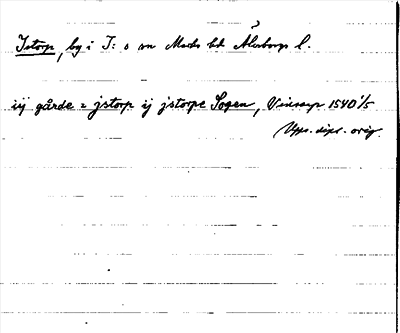 Istorp, by i I: s sn Marks hd Älvsborgs l.
iij gårde i jstorp ij jstorpe Sogen, Vinsarp 1540 1/5
Upps. dipl. orig.